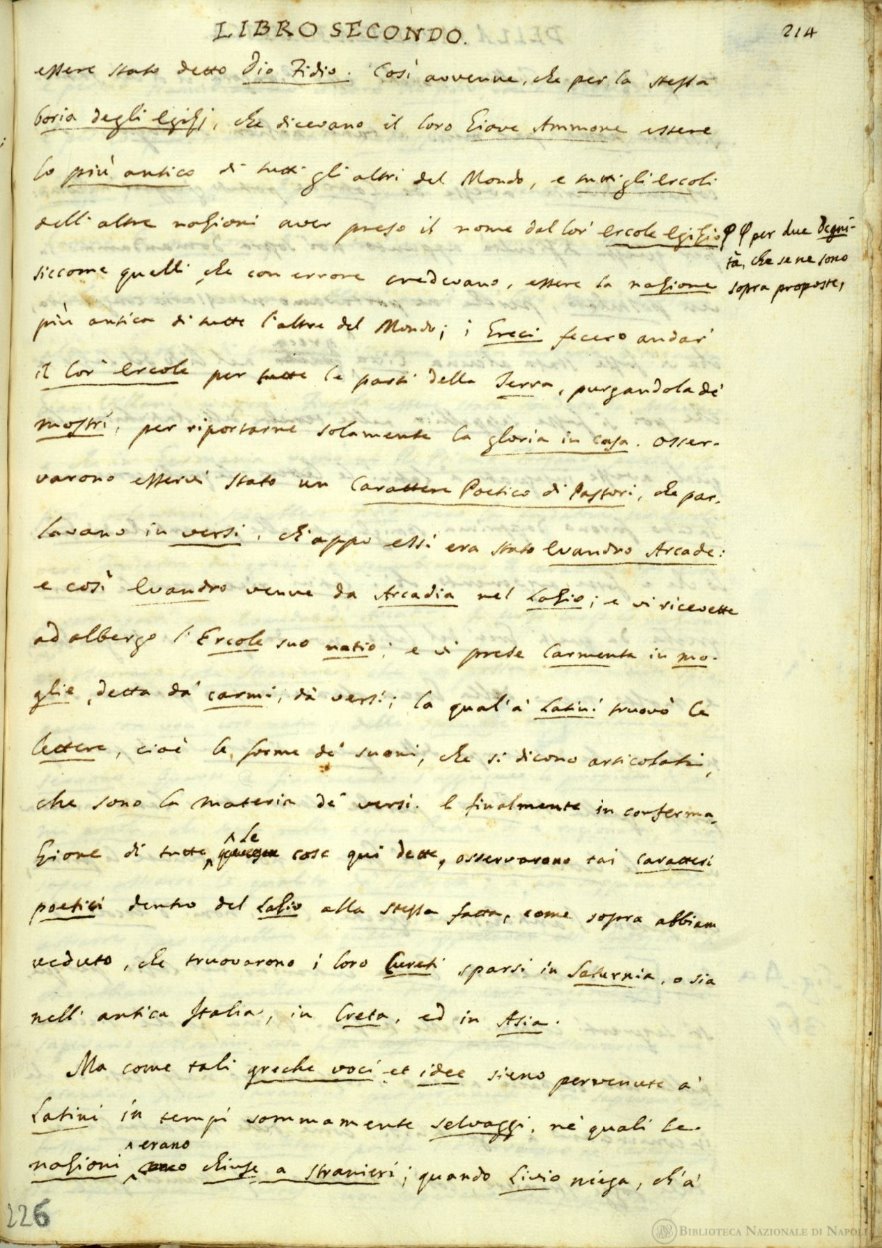 LIBRO SECONDO.
214
essere stato detto Dio Fidio. Così avvenne, che per la stessa
boria degli Egizj, che dicevano il loro Giove Ammone essere
lo più antico di tutti gli altri del Mondo, e tutti gli Ercoli
dell'altre nazioni aver preso il nome dal lor' Ercole Egizio
φ φ per due Degni-
tà, che se ne sono
sopra proposte,
siccome quelli, che con errore credevano, essere la nazione
più antica di tutte l'altre del Mondo; i Greci fecero andar'
il lor' Ercole per tutte le parti della Terra, purgandola de'
mostri, per riportarne solamente la gloria in casa. Osser-
varono esservi stato un Carattere Poetico di Pastori, che par-
lavano in versi, ch'appo essi era stato Evandro Arcade:
e così Evandro venne da Arcadia nel Lazio; e vi ricevette
ad albergo l'Ercole suo natio; e vi prese Carmenta in mo-
glie, detta da' carmi, da' versi; la qual' a' Latini truovò le
lettere, cioè le forme de' suoni, che si dicono articolati,
che sono la materia de' versi. E finalmente in conferma-
zione di tutte le cose qui dette, osservarono tai caratteri
poetici dentro del Lazio alla stessa fatta, come sopra abbiam
veduto, che truovarono i loro Cureti sparsi in Saturnia, o sia
nell'antica Italia, in Creta, ed in Asia.
Ma come tali greche voci et idee sieno pervenute a'
Latini in tempi sommamente selvaggi, ne' quali le
nazioni erano chiuse a stranieri; quando Livio niega, ch'a'
226
BIBLIOTECA NAZIONALE DI NAPOLI